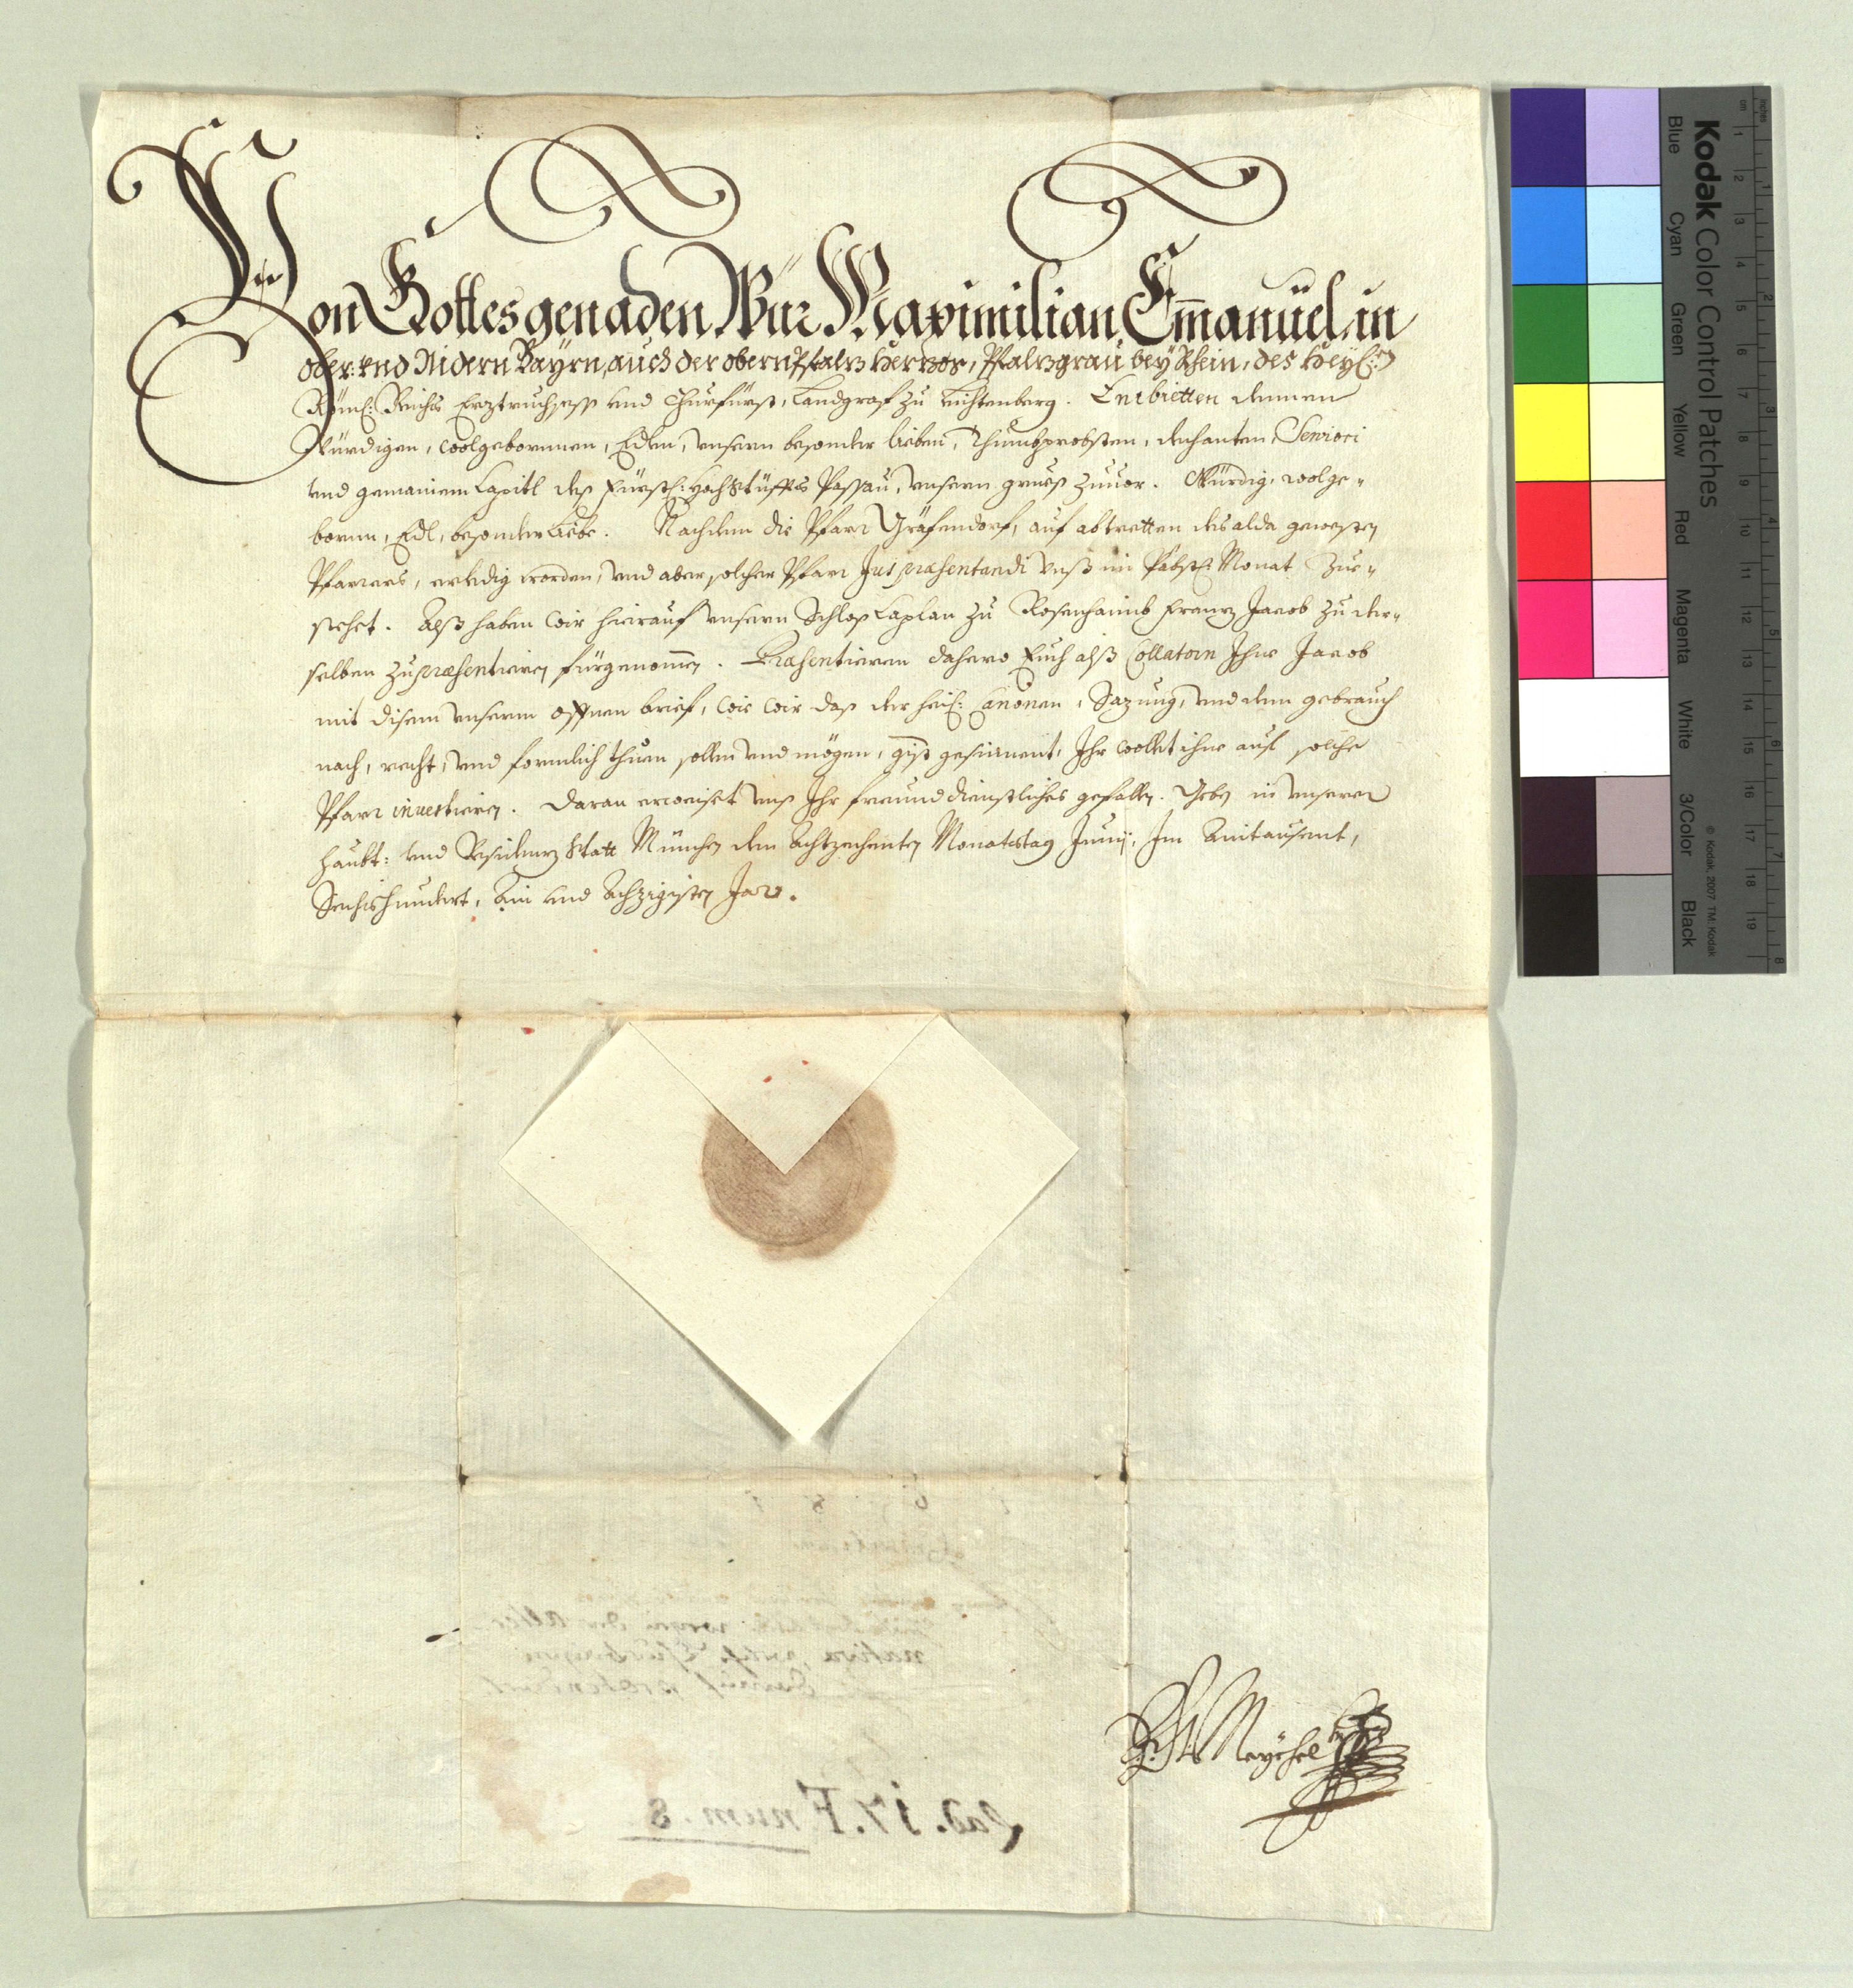 Von Gottes genaden Wür Maximilian Emanuel, in
ober: vnd Nidern Bayrn, auch der obern Pfalz Herzog, Pfalzgrau bey Rhein, des Heyl:
Röm: Reichs Erztruchsess vnd Churfürst, Landgraf zu Leichtenberg. Entbietten dennen
Würdigen, wolgebornnen, Edlen, vnsern besonder lieben, Thumbprobsten, dechanten, Seniori
vnd gemainem Capitl des Fürstl: Hochstüffts Passau, vnsern grues zuuor. Würdig, wolge-
bornn, Edl, besonder Liebe. Nachdem die Pfarr Gräfendorf, auf abtretten des alda gewesten
Pfarrers, erledig worden, vnd aber solcher Pfarr Jus præsentandi vnß im Päbstl: Monat Zue-
stehet. Alß haben wir hierauf vnsern Schloß Caplan zu Rosenhaimb Franz Jacob zu der-
selben zu præsentieren fürgenommen. Præsentieren dahero Euch alß Collatorn Ihne Jacob
mit disem vnserm offnen brief, wie wir daß der heil: Canonen, Sazung, vnd dem gebrauch
nach, recht, vnd formlich thuen sollen vnd mögen, gdist gesinnent, Ihr wollet ihne auf solche
Pfarr investieren. Daran erweiset vns Ihr freunddienstliches gefallen. Geben in vnserer
Haubt: vnd Residenz Statt München den Achtzechenten Monatstag Junij, Im Aintausent,
Sechshundert, Ain vnd Achzigisten Jar.
Lad. 17. F num. 8